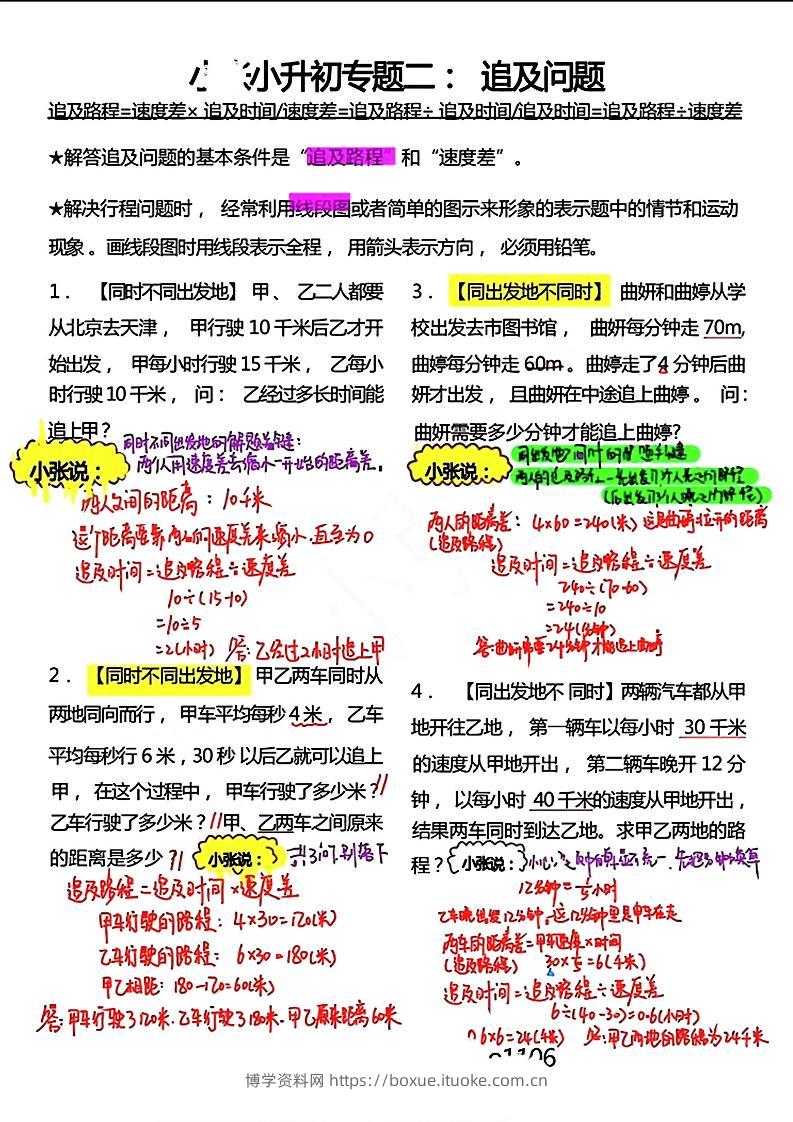 小张小升初专题二： 追及问题
追及路程=速度差× 追及时间/速度差=追及路程÷ 追及时间/追及时间=追及路程÷速度差
★解答追及问题的基本条件是“追及路程”和“速度差”。
★解决行程问题时， 经常利用线段图或者简单的图示来形象的表示题中的情节和运动
现象。画线段图时用线段表示全程， 用箭头表示方向， 必须用铅笔。
1． 【同时不同出发地】 甲、 乙二人都要
从北京去天津， 甲行驶 10 千米后乙才开
始出发， 甲每小时行驶 15 千米， 乙每小
时行驶 10 千米， 问： 乙经过多长时间能
追上甲？
同时不同出发地的解题关键：
两人用速度差去缩小一开始的距离差。
小张说：
两人之间的距离：10千米
这个距离要靠两人的速度差来缩小.直至为0
追及时间=追及路程÷速度差
10÷(15-10)
=10÷5
=2(小时) 答:乙经过2小时追上甲
2． 【同时不同出发地】 甲乙两车同时从
两地同向而行， 甲车平均每秒 4 米， 乙车
平均每秒行 6 米，30 秒 以后乙就可以追上
甲， 在这个过程中， 甲车行驶了多少米？
乙车行驶了多少米？甲、乙两车之间原来
的距离是多少？
小张说：
共3问.别落下
追及路程=追及时间×速度差
甲车行驶的路程：4×30=120(米)
乙车行驶的路程：6×30=180(米)
甲乙相距：180-120=60(米)
答:甲车行驶了120米.乙车行驶了180米.甲乙原来距离60米
3． 【同出发地不同时】 曲妍和曲婷从学
校出发去市图书馆， 曲妍每分钟走 70m,
曲婷每分钟走 60m 。曲婷走了4 分钟后曲
妍才出发， 且曲妍在中途追上曲婷 。 问：
曲妍需要多少分钟才能追上曲婷?
小张说：
同出发地不同时的解题关键
两人的追及路程=先出发的人先走的路程
两人的距离差：4×60=240(米)
(追及路程)
追及时间=追及路程÷速度差
240÷(70-60)
=240÷10
=24(分钟)
答:曲妍需要24分钟才能追上曲婷
4． 【同出发地不 同时】两辆汽车都从甲
地开往乙地， 第一辆车以每小时 30 千米
的速度从甲地开出， 第二辆车晚开 12 分
钟， 以每小时 40 千米的速度从甲地开出，
结果两车同时到达乙地。求甲乙两地的路
程？
小张说：
12分钟=1/5小时
乙车晚出发12分钟,这12分钟里是甲车在走
两车的距离差=甲车速度×时间
(追及路程) 30×1/5=6(千米)
追及时间=追及路程÷速度差
6÷(40-30)=0.6(小时)
答:甲乙两地的路程为24千米
博学资料网 https://boxue.ituoke.com.cn